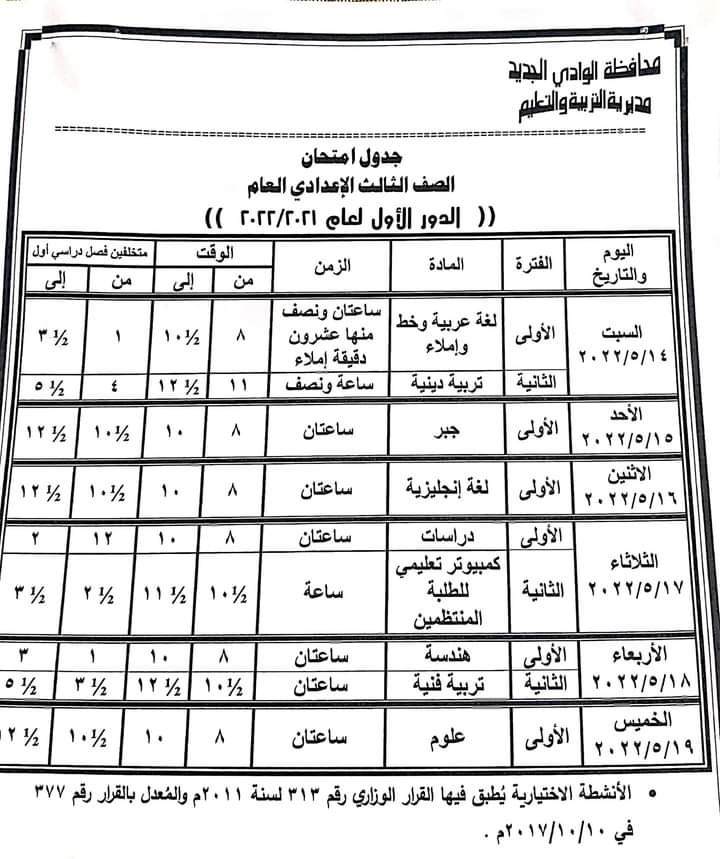 محافظة الوادي الجديد
مديرية التربية والتعليم
جدول امتحان
الصف الثالث الإعدادي العام
(( الدور الأول لعام ٢٠٢٢/٢٠٢١ ))
اليوم والتاريخ | الفترة | المادة | الزمن | الوقت | متخلفين فصل دراسي أول
من | إلى | من | إلى
السبت ٢٠٢٢/٥/١٤ | الأولى | لغة عربية وخط وإملاء | ساعتان ونصف منها عشرون دقيقة إملاء | ٨ | ١٠½ | ١ | ٣½
الثانية | تربية دينية | ساعة ونصف | ١١ | ١٢½ | ٤ | ٥½
الأحد ٢٠٢٢/٥/١٥ | الأولى | جبر | ساعتان | ٨ | ١٠ | ١٠½ | ١٢½
الاثنين ٢٠٢٢/٥/١٦ | الأولى | لغة إنجليزية | ساعتان | ٨ | ١٠ | ١٠½ | ١٢½
الثلاثاء ٢٠٢٢/٥/١٧ | الأولى | دراسات | ساعتان | ٨ | ١٠ | ١٢ | ٢
الثانية | كمبيوتر تعليمي للطلبة المنتظمين | ساعة | ١٠½ | ١١½ | ٢½ | ٣½
الأربعاء ٢٠٢٢/٥/١٨ | الأولى | هندسة | ساعتان | ٨ | ١٠ | ١ | ٣
الثانية | تربية فنية | ساعتان | ١٠½ | ١٢½ | ٣½ | ٥½
الخميس ٢٠٢٢/٥/١٩ | الأولى | علوم | ساعتان | ٨ | ١٠ | ١٠½ | ١٢½
• الأنشطة الاختيارية يُطبق فيها القرار الوزاري رقم ٣١٣ لسنة ٢٠١١م والمُعدل بالقرار رقم ٣٧٧
في ٢٠١٧/١٠/١٠م .